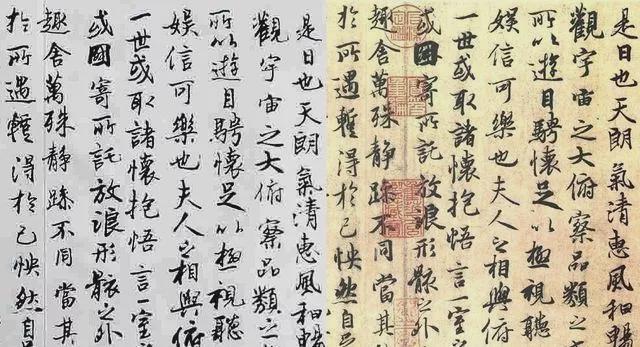 是日也天朗氣清惠風和暢
觀宇宙之大俯察品類之
所以遊目騁懷足以極視聽
娛信可樂也夫人之相與俯
一世或取諸懷抱悟言一室之
或因寄所託放浪形骸之外
趣舍萬殊靜躁不同當其
於所遇暫得於己怏然自
是日也天朗氣清惠風和暢
觀宇宙之大俯察品類之
所以遊目騁懷足以極視聽
娛信可樂也夫人之相與俯
一世或取諸懷抱悟言一室之
或因寄所託放浪形骸之外
趣舍萬殊靜躁不同當其
於所遇暫得於己怏然自